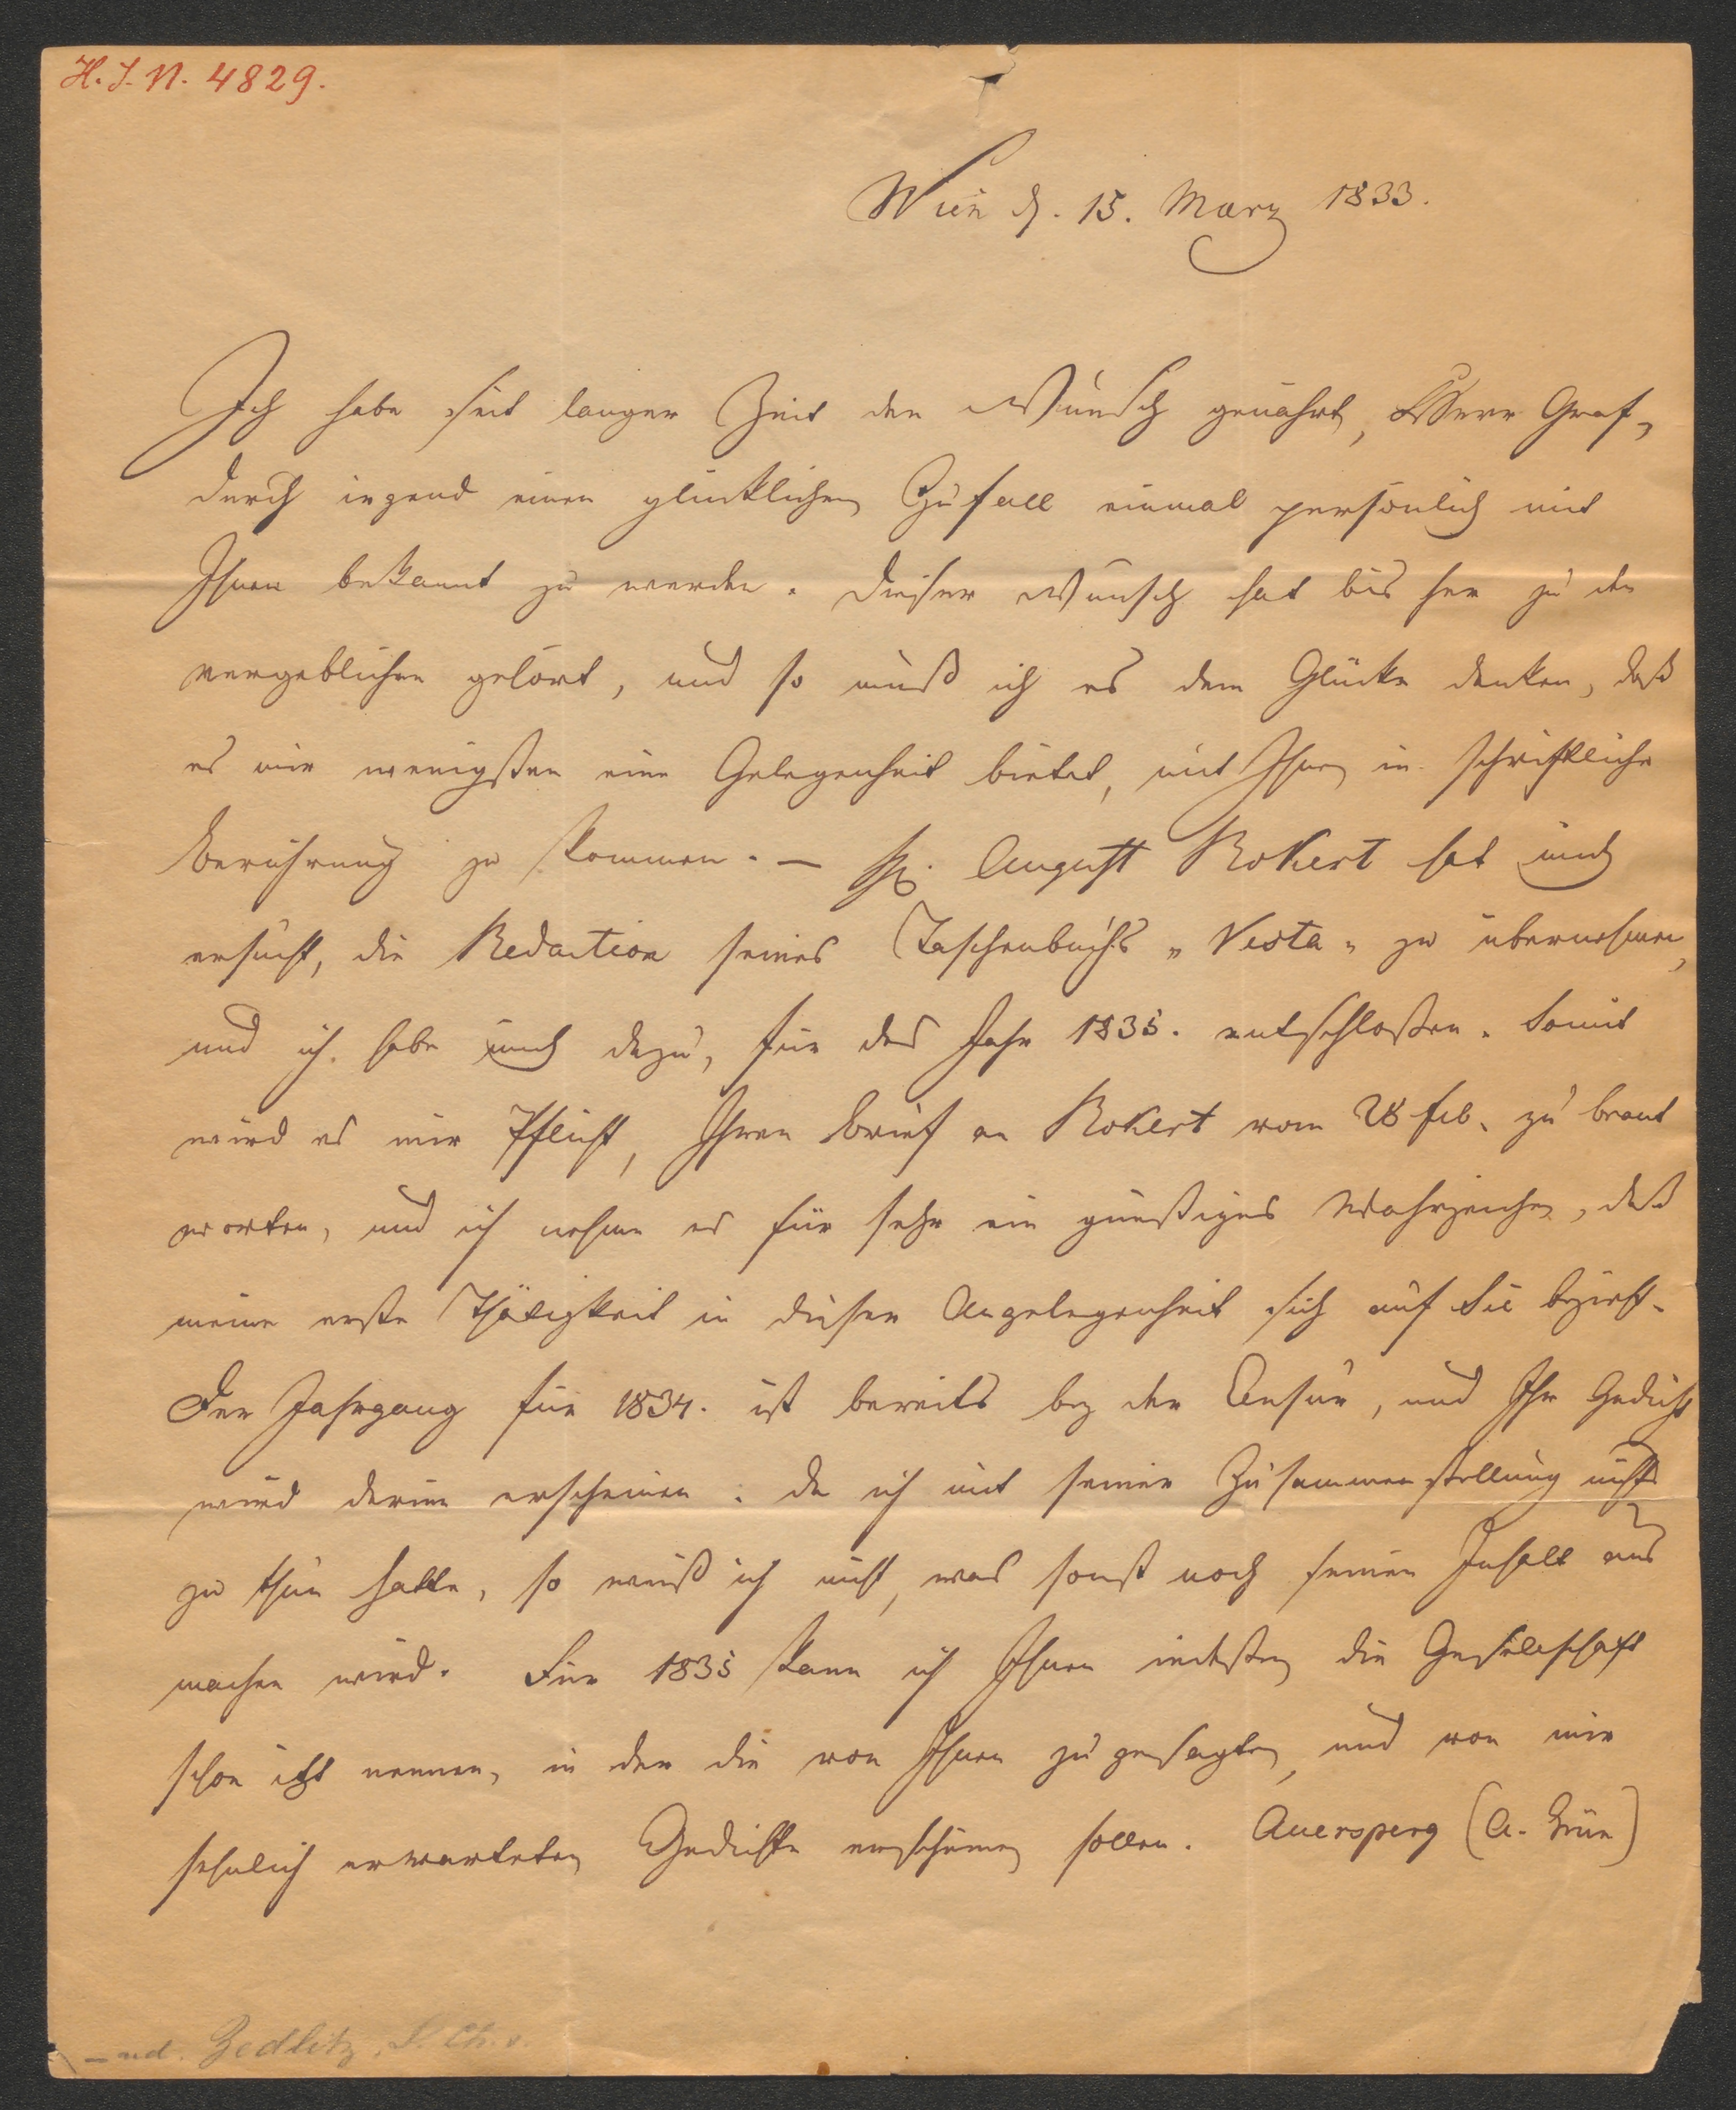 H. I. N. 4829.
Wien d. 15. März 1833.
Ich habe seit langer Zeit den Wunsch genährt, Herr Graf,
durch irgend einen glücklichen Zufall einmal persönlich mit
Ihnen bekannt zu werden. Dieser Wunsch hat bis her zu den
vergeblichen gehört, und so muß ich es dem Glücke danken, daß
es mir wenigsten eine Gelegenheit bietet, mit Ihnen in schriftliche
Berührung zu kommen. — H. August Rokert hat mich
ersucht, die Redaction seines Taschenbuchs „Vesta" zu übernehmen,
und ich habe mich dazu, für das Jahr 1835. entschloßen. Somit
wird es mir Pflicht, Ihren Brief an Rokert vom 28 feb. zu beant
worten, und ich nehme es für sehr ein günstiges Wahrzeichen, daß
meine erste Thätigkeit in dieser Angelegenheit sich auf Sie bezieht.
Der Jahrgang für 1834. ist bereits bey der Censur, und Ihr Gedicht
wird darinn erscheinen. Da ich mit seiner Zusammenstellung nichts
zu thun hatte, so weiß ich nicht, was sonst noch seinen Inhalt aus
machen wird. Für 1835 kann ich Ihnen indeßen die Gesellschaft
schon itzt nennen, in der die von Ihnen zugesagten, und von mir
sehnlich erwarteten Gedichte erscheinen sollen. Auersperg (A. Grün)
Zedlitz, J. Ch. v.